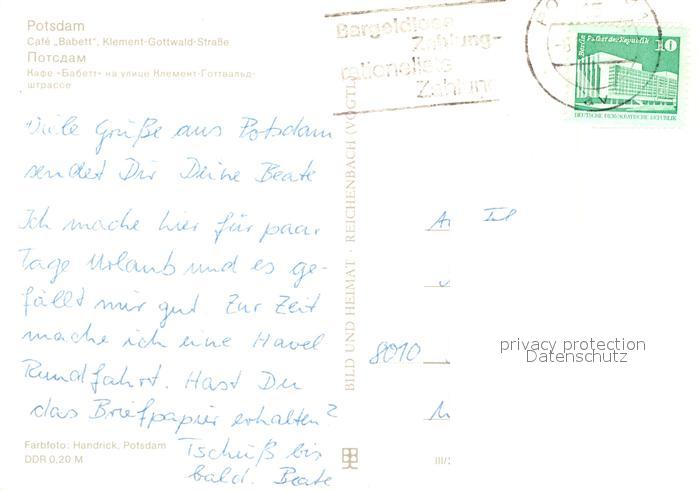 Potsdam
Café „Babett", Klement-Gottwald-Straße
Потсдам
Кафе «Бабетт» на улице Клемент-Готтвальд-
штрассе
Viele Grüße aus Potsdam
sendet Dir Deine Beate
Ich mache hier für paar
Tage Urlaub und es ge-
fällt mir gut Zur Zeit
mache ich eine Havel
Rundfahrt. Hast Du
das Briefpapier erhalten?
Tschüß bis
bald. Beate
Farbfoto: Handrick, Potsdam
DDR 0,20 M
BILD UND HEIMAT · REICHENBACH (VOGTL
III/
Bargeldlose
Zahlung-
rationellste
Zahlung
Berlin Palast der Republik
10
DEUTSCHE DEMOKRATISCHE REPUBLIK
8010
privacy protection
Datenschutz